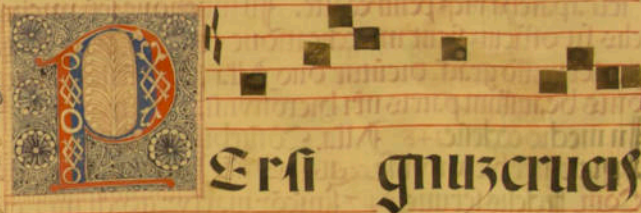 PErsi gnuzcrucis